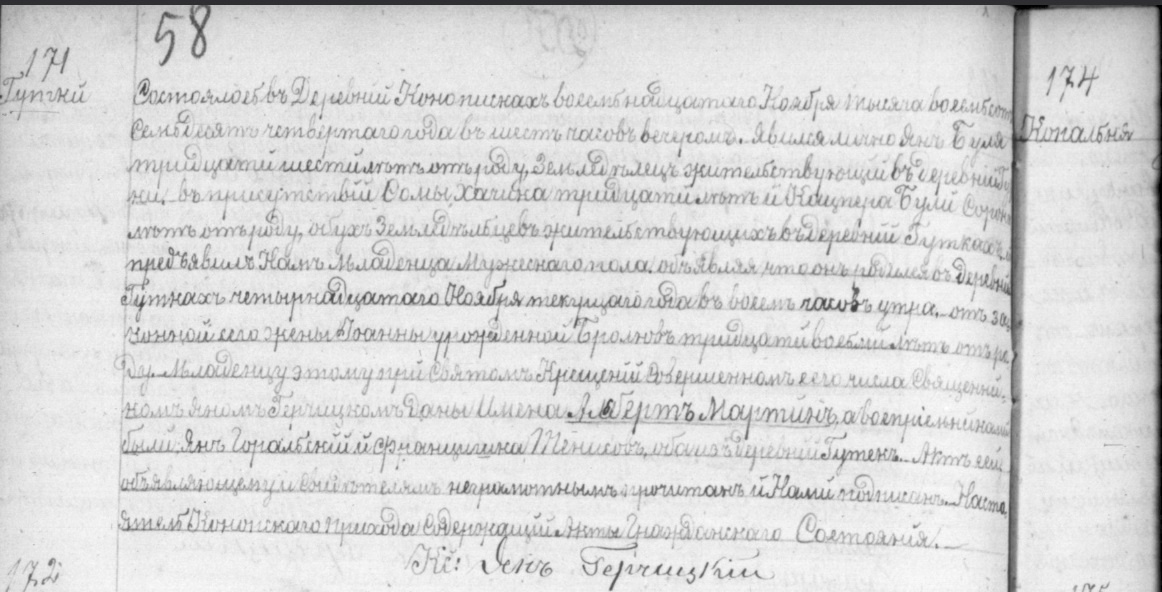 58
171
Гутки
Состоялось въ Деревни Конопискахъ восемьнадцатаго Ноября тысяча восемьсотъ
семьдесятъ четвертаго года въ шесть часовъ вечеромъ. Явился лично Янъ Буля
тридцати шести лѣтъ отъ роду, Земледѣлецъ жительствующій въ деревни
въ присутствіи Хачика тридцати лѣтъ и Кацпера Були
лѣтъ отъ роду, обухъ Земледѣльцевъ жительствующихъ въ деревни Гуткахъ,
предъявилъ Намъ Младенца Мужескаго пола, объявляя что онъ родился въ деревни
Гуткахъ четырнадцатаго Ноября текущаго года въ восемь часовъ утра, отъ за-
конной его жены Іоанны урожденной тридцати восьми лѣтъ отъ ро-
ду. Младенцу этому при Святомъ Крещеніи совершенномъ сего числа Священни-
комъ Яномъ Герчицкомъ даны Имена Альбертъ Мартинъ, а воспріемниками
были, Янъ Горальскій и Францишка оба изъ деревни Гутекъ. Актъ сей
объявляющему и свидѣтелямъ неграмотнымъ прочитанъ и Нами подписанъ. Насто-
ятель Конопскаго Прихода Содержащій Акты Гражданскаго Состоянія.
Кс: Янъ Герчицкій
172
174